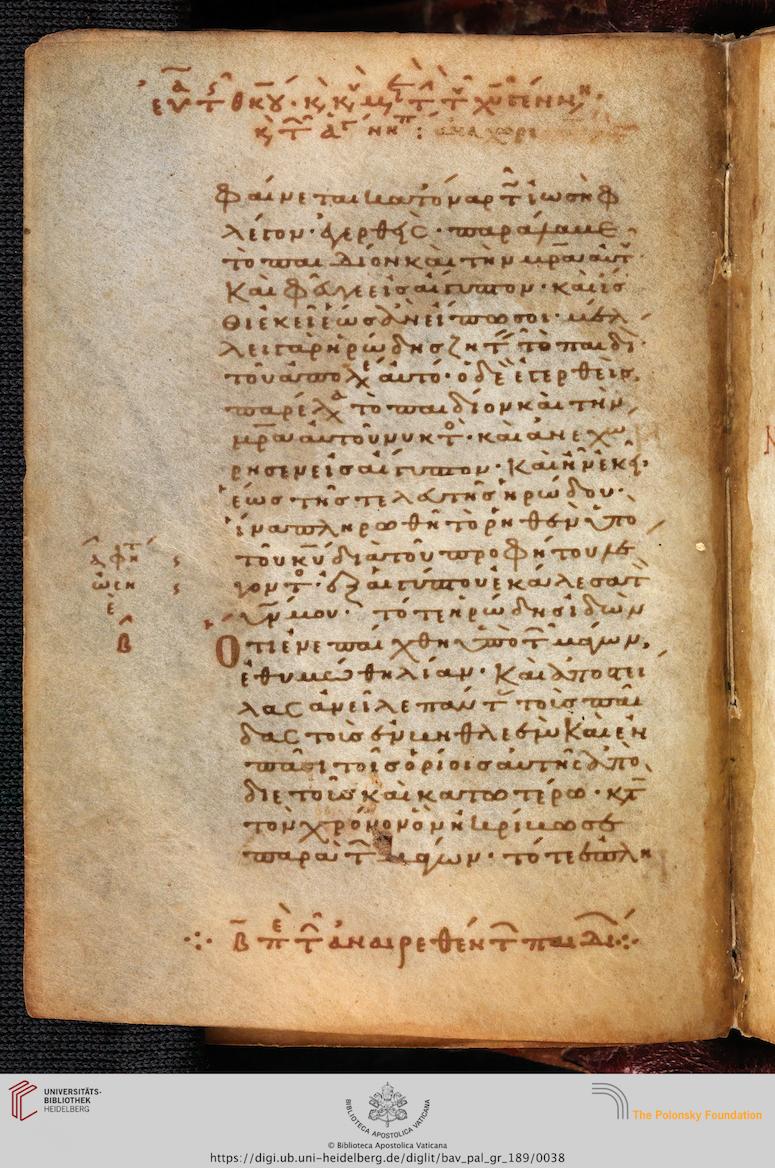 φαίνεται κατόναρ τ ἰωσὴφ
λέγων· ἐγερθεὶς· παράλαβε
τὸ παιδίον καὶ τὴν μρα αυτ
Καὶ φεῦγε εἰς αἴγυπτον· κὰι ἴσ
θι ἐκεῖ ἕως ἂν εἴπω σοι· μέλ
λει γὰρ ἡρώδης ζητ τὸ παιδί
τοῦ ἀπολ αὐτό· ὁ δὲ ἐγερθεὶς
παρέλ τὸ παιδίον κὰι τὴν
μρα αὐτοῦ νυκτ· κὰι ἀνεχω
ρησεν εἰς αἴγυπτον· Καὶ ἦν ἐκεῖ
ἕως τῆς τελευτῆς ἡρώδου·
ἵνα πληρωθῆ τὸ ῥηθὲν ὑπὸ
τοῦ κυ διὰ τοῦ προφήτου λε
γοντ· ἐξ αἰγύπτου ἐκάλεσα τ
υν μου· τότε ἡρώδης ἰδὼν
Ὅτι ἐνεπαίχθη ὑπὸ τ μάγων,
ἐθυμώθη λίαν· Καὶ ἀποστεί
λας ἀνεῖλε πάντ τοὺς παῖ
δας τοὺς ἐν βηθλεὲμ Καὶ ἐν
πᾶσι τοῖς ὁρίοις αὐτῆς ἀπὸ
διετοῦς κὰι κατωτέρω· κτ
τὸν χρόνον ὃν ἠκρίβωσε
παρὰ τ μάγων· τότε ἐπλη
Β π τ ἀναιρεθέντ παιδι
UNIVERSITÄTS-
BIBLIOTHEK
HEIDELBERG
BIBLIOTECA APOSTOLICA VATICANA
The Polonsky Foundation
© Biblioteca Apostolica Vaticana
https://digi.ub.uni-heidelberg.de/diglit/bav_pal_gr_189/0038